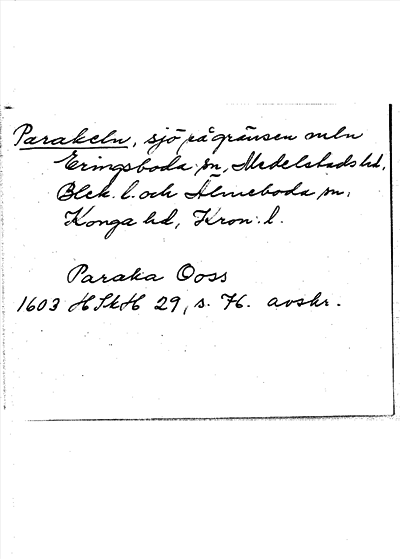 Parakeln, sjö på gränsen mln
Eringsboda sn, Medelstads hd,
Blek. l. och Älmeboda sn,
Konga hd, Kron. l.
Paraka Ooss
1603 HSkH 29, s. 76. avskr.